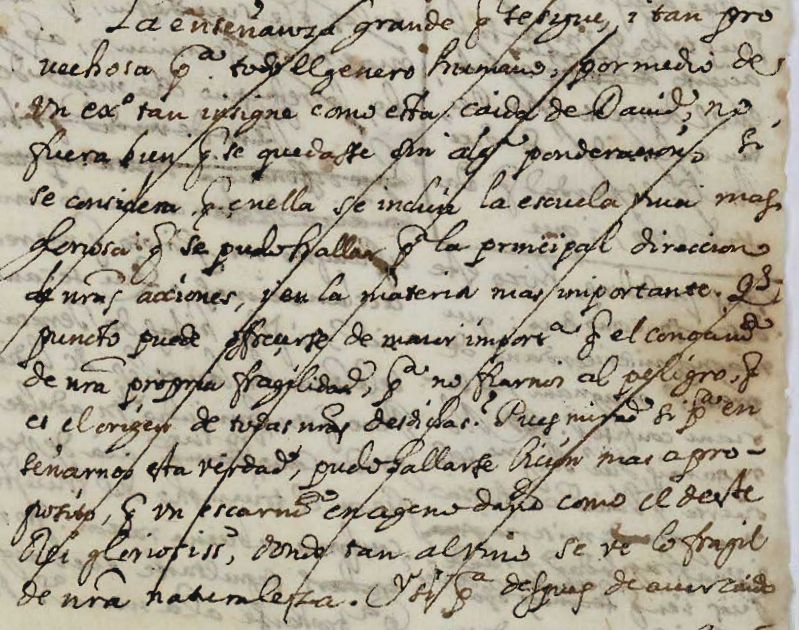 La enseñanza grande q̃ se sigue, i tan pro
vechosa pª todo el genero humano, por medio de
un exº tan insigne como esta caida de David, no
fuera bien q̃ se quedasse sin algª ponderacion, si
se considera q̃ en ella se incluia la escuela mas
gloriosa q̃ se pudo hallar pª la principal direccion
de nr̃as acciones, i en la materia mas importante.
puncto puede ofrecerse de maior importª q̃ el
de nr̃a propria fragilidad, pª no fiarnos al peligro, q̃
es el origen de todas nr̃as desdichas? Pues mirad si pª en
señarnos esta verdad, pudo hallarse licion mas a pro-
posito, q̃ un escarmᵗᵒ en ageno daño como el deste
Rei gloriosissº, donde tan al vivo se ve lo fragil
de nr̃a naturaleza. Y si pª despues de aver caido